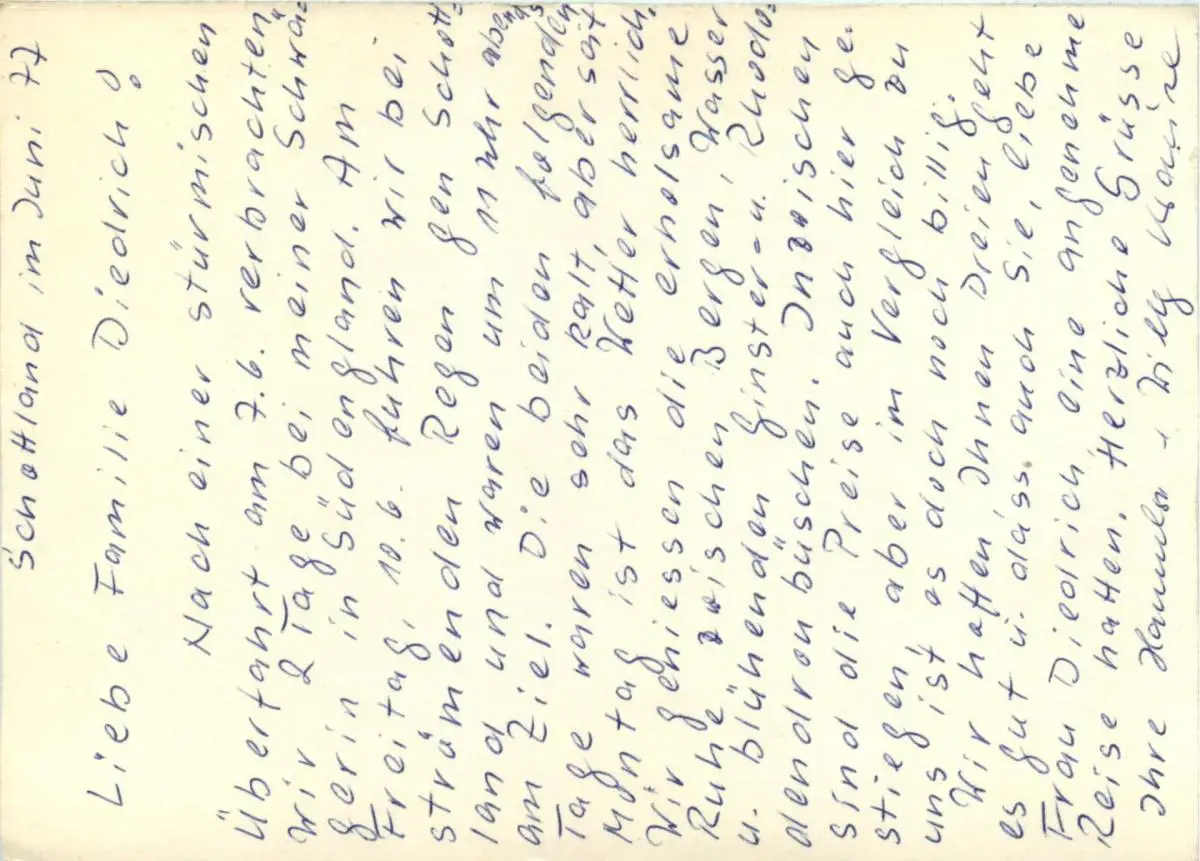 Schottland im Juni 77
Liebe Familie Diedrich!
Nach einer stürmischen
Überfahrt am 7.6. verbrachten
wir 2 Tage bei meiner Schwä-
gerin in Südengland. Am
Freitag, 10.6. fuhren wir bei
strömenden Regen gen Schott-
land und waren um 11 Uhr abends
am Ziel. Die beiden folgenden
Tage waren sehr kalt, aber seit
Montag ist das Wetter herrlich.
Wir geniessen die erholsame
Ruhe zwischen Bergen, Wasser
u. blühenden Ginster- u. Rhodo-
dendronbüschen. Inzwischen
sind die Preise auch hier ge-
stiegen, aber im Vergleich zu
uns ist es doch noch billig.
Wir hoffen Ihnen Dreien geht
es gut u. dass auch Sie, liebe
Frau Diedrich, eine angenehme
Reise hatten. Herzliche Grüsse
Ihre + Willy